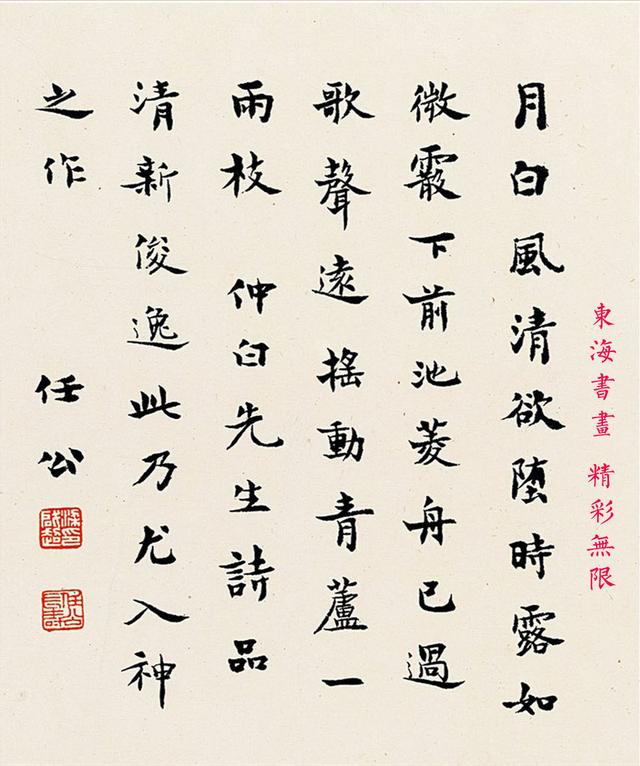 東海書畫 精彩無限
月白風清欲堕時露如
微霰下前池菱舟已過
歌聲遠搖動青蘆一
兩枝 仲白先生詩品
清新俊逸此乃尤入神
之作 任公